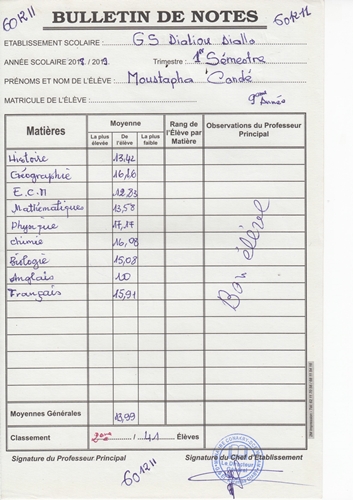 60211
60211
BULLETIN DE NOTES
ETABLISSEMENT SCOLAIRE : GS Dialiou Diallo
ANNÉE SCOLAIRE 2018 / 2019 Trimestre : 1er Sémestre
PRÉNOMS ET NOM DE L'ÉLÈVE : Moustapha Condé
MATRICULE DE L'ÉLÈVE : 9ème Année
Matières
Moyenne
La plus élevée
De l'élève
La plus faible
Rang de l'Élève par Matière
Observations du Professeur Principal
Histoire 13,42
Géographie 16,16
E.C.M
Mathématique 13,58
Physique 17,17
chimie 16,08
Biologie 15,08
Anglais
Français 15,91
Bon élève
Moyennes Générales 13,99
Classement / 41 Élèves
Signature du Professeur Principal
Signature du Chef d'Établissement
60211
Le Directeur Général